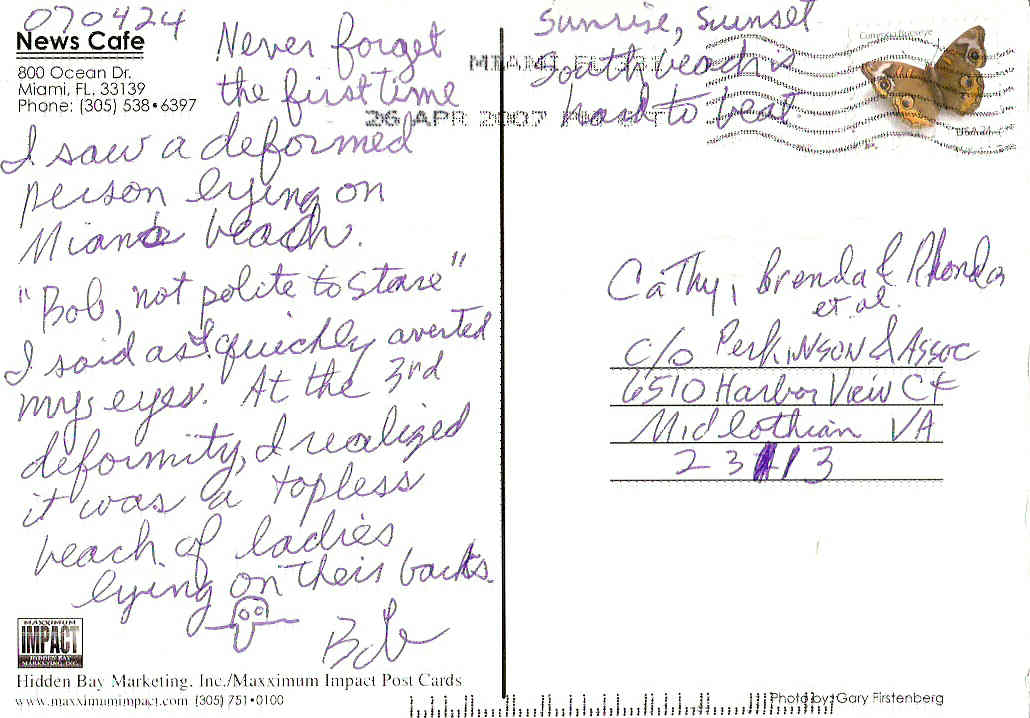 070424
News Cafe
800 Ocean Dr.
Miami, FL. 33139
Phone: (305) 538•6397
Never forget
the first time
I saw a deformed
person lying on
Miami beach.
"Bob, not polite to stare"
I said as I quickly averted
my eyes. At the 3rd
deformity, I realized
it was a topless
beach of ladies
lying on their backs.
Bob
MAXXIMUM
IMPACT
HIDDEN BAY
MARKETING, INC.
Hidden Bay Marketing, Inc./Maxximum Impact Post Cards
www.maxximumimpact.com (305) 751•0100
Sunrise, Sunset
South beach is
hard to beat
MIAMI FL
26 APR 2007 PM
Common Buckeye
USA 24
Cathy, Brenda & Rhonda
et. al.
c/o Perkinson & Assoc
6510 Harbor View Ct
Midlothian VA
23113
Photo by: Gary Firstenberg